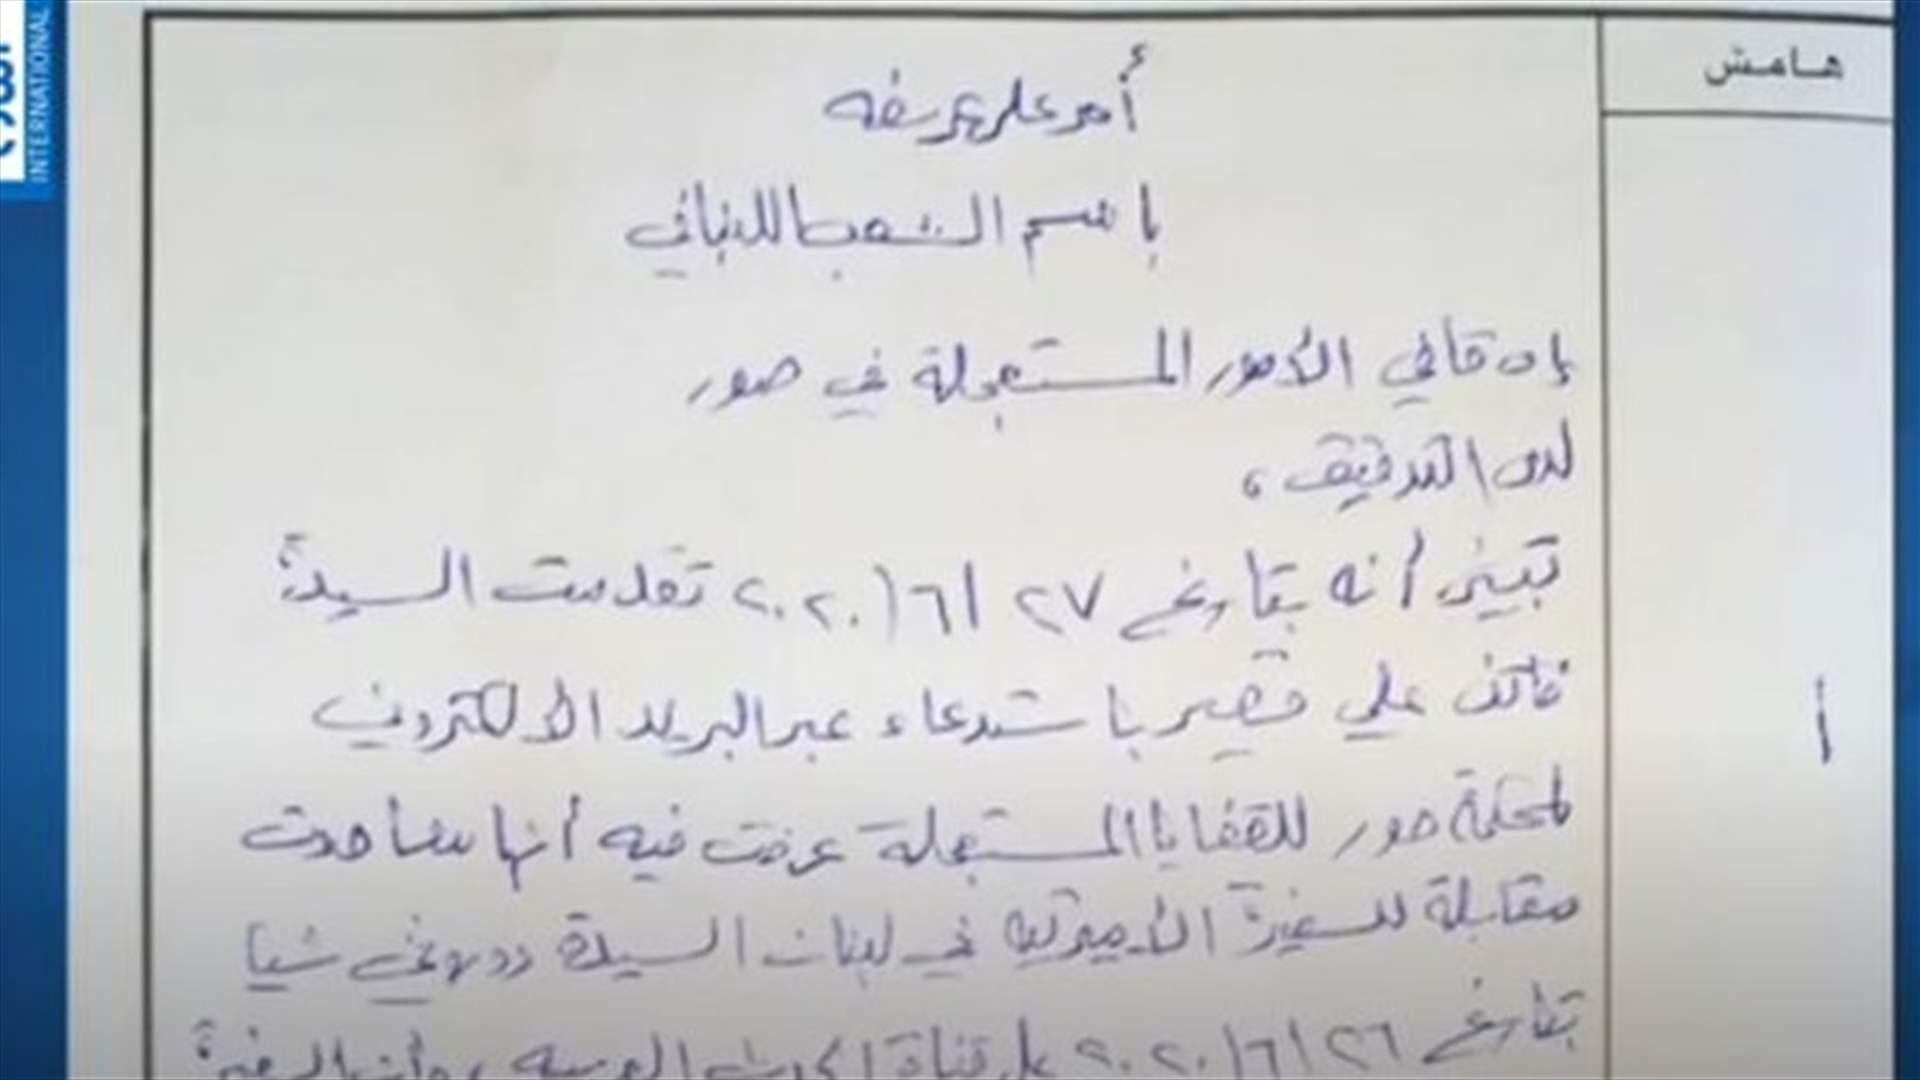 هامش
أمر على عريضة
باسم الشعب اللبناني
إن قاضي الأمور المستعجلة في صور
لدى التدقيق،
تبين أنه بتاريخ ٢٧/٦/٢٠٢٠ تقدمت السيدة
فاتن علي قصير باستدعاء عبر البريد الالكتروني
لمحكمة صور للقضايا المستعجلة عرضت فيه أنها شاهدت
مقابلة للسفيرة الأميركية في لبنان السيدة دوروثي شيا
بتاريخ ٢٦/٦/٢٠٢٠ على قناة الحدث العربية، وأن السفيرة
INTERNATIONAL